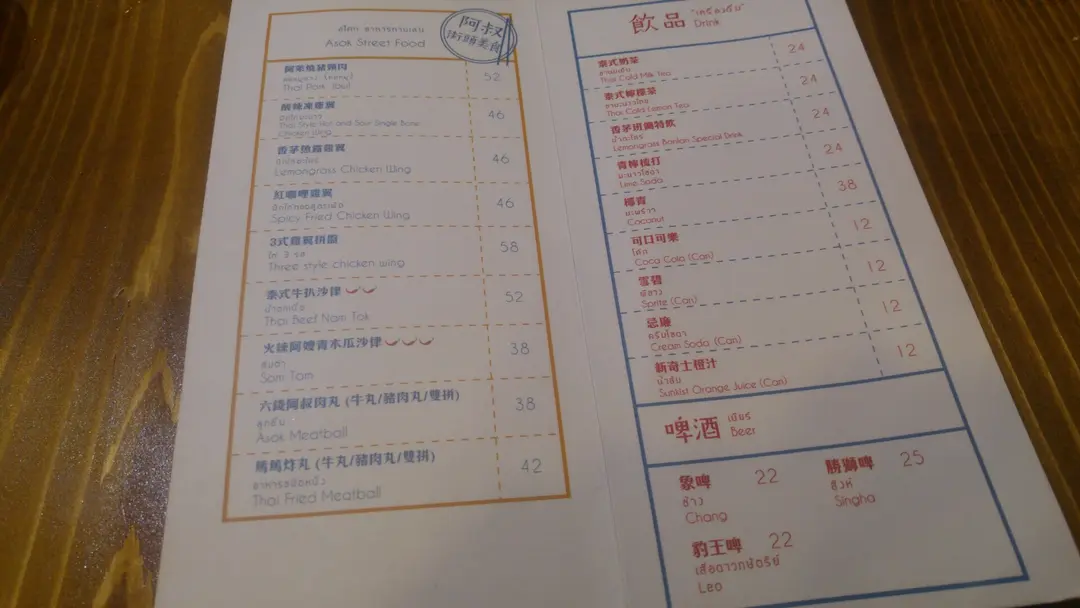 อโศก อาหารทานเล่น
Asok Street Food
阿叔
街頭美食
阿泰燒豬頸肉
52
Thai Pork Jowl
酸辣凍雞翼
46
Thai Style Hot and Sour Single Bone
Chicken Wing
香茅熱露雞翼
46
Lemongrass Chicken Wing
紅咖哩雞翼
46
Spicy Fried Chicken Wing
3式雞翼拼盤
58
ไก่ 3 รส
Three style chicken wing
泰式牛扒沙律
52
Thai Beef Nam Tok
火辣阿嫂青木瓜沙律
38
ส้มตำ
Som Tam
六錢阿叔肉丸 (牛丸/豬肉丸/雙拼)
38
ลูกชิ้น
Asok Meatball
篤篤炸丸 (牛丸/豬肉丸/雙拼)
42
Thai Fried Meatball
飲品 "เครื่องดื่ม"
Drink
泰式奶茶
24
ชานมเย็น
Thai Cold Milk Tea
泰式檸檬茶
24
ชามะนาวไทย
Thai Cold Lemon Tea
香茅班蘭特飲
24
น้ำตะไคร้
Lemongrass Banlan Special Drink
青檸梳打
24
มะนาวโซดา
Lime Soda
椰青
38
มะพร้าว
Coconut
可口可樂
12
โค้ก
Coca Cola (Can)
雪碧
12
Sprite (Can)
忌廉
12
ครีมโซดา
Cream Soda (Can)
新奇士橙汁
12
น้ำส้ม
Sunkist Orange Juice (Can)
啤酒 เบียร์
Beer
象啤 22
ช้าง
Chang
勝獅啤 25
สิงห์
Singha
豹王啤 22
Leo